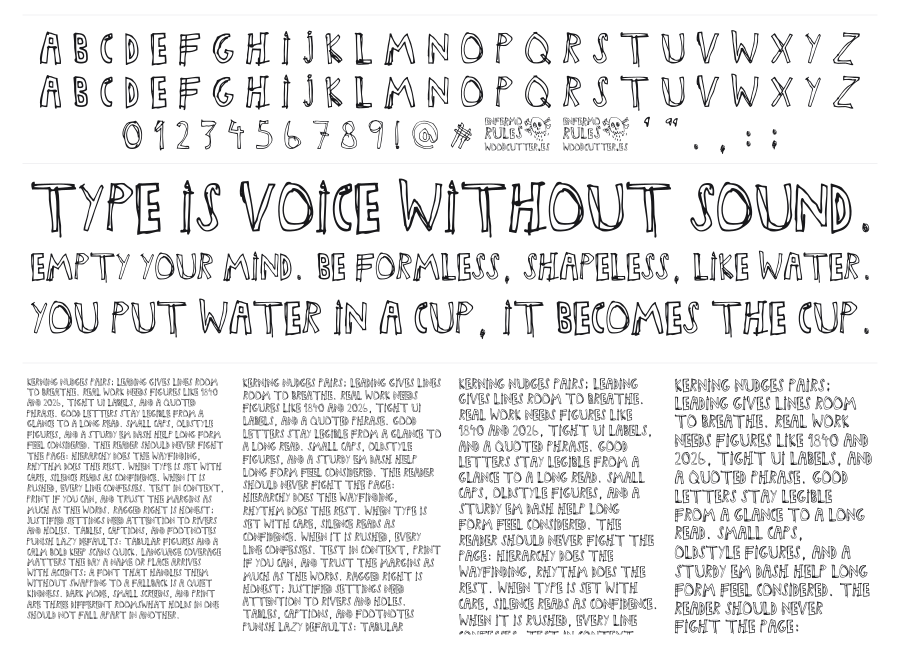 A B C D E F G H I J K L M N O P Q R S T U V W X Y Z
A B C D E F G H I J K L M N O P Q R S T U V W X Y Z
0 1 2 3 4 5 6 7 8 9 ! @ # ENFERMO RULES WOODCUTTER.ES ENFERMO RULES WOODCUTTER.ES ' " . , : ;
TYPE IS VOICE WITHOUT SOUND.
EMPTY YOUR MIND. BE FORMLESS, SHAPELESS, LIKE WATER.
YOU PUT WATER IN A CUP, IT BECOMES THE CUP.
KERNING NUDGES PAIRS; LEADING GIVES LINES ROOM
TO BREATHE. REAL WORK NEEDS FIGURES LIKE 1840
AND 2026, TIGHT UI LABELS, AND A QUOTED
PHRASE. GOOD LETTERS STAY LEGIBLE FROM A
GLANCE TO A LONG READ. SMALL CAPS, OLDSTYLE
FIGURES, AND A STURDY EM DASH HELP LONG FORM
FEEL CONSIDERED. THE READER SHOULD NEVER FIGHT
THE PAGE: HIERARCHY DOES THE WAYFINDING,
RHYTHM DOES THE REST. WHEN TYPE IS SET WITH
CARE, SILENCE READS AS CONFIDENCE. WHEN IT IS
RUSHED, EVERY LINE CONFESSES. TEST IN CONTEXT,
PRINT IF YOU CAN, AND TRUST THE MARGINS AS
MUCH AS THE WORDS. RAGGED RIGHT IS HONEST;
JUSTIFIED SETTINGS NEED ATTENTION TO RIVERS
AND HOLES. TABLES, CAPTIONS, AND FOOTNOTES
PUNISH LAZY DEFAULTS: TABULAR FIGURES AND A
CALM BOLD KEEP SCANS QUICK. LANGUAGE COVERAGE
MATTERS THE DAY A NAME OR PLACE ARRIVES
WITH ACCENTS; A FONT THAT HANDLES THEM
WITHOUT SWAPPING TO A FALLBACK IS A QUIET
KINDNESS. DARK MODE, SMALL SCREENS, AND PRINT
ARE THREE DIFFERENT ROOMSWHAT HOLDS IN ONE
SHOULD NOT FALL APART IN ANOTHER.
KERNING NUDGES PAIRS; LEADING GIVES LINES
ROOM TO BREATHE. REAL WORK NEEDS
FIGURES LIKE 1840 AND 2026, TIGHT UI
LABELS, AND A QUOTED PHRASE. GOOD
LETTERS STAY LEGIBLE FROM A GLANCE TO
A LONG READ. SMALL CAPS, OLDSTYLE
FIGURES, AND A STURDY EM DASH HELP
LONG FORM FEEL CONSIDERED. THE READER
SHOULD NEVER FIGHT THE PAGE:
HIERARCHY DOES THE WAYFINDING,
RHYTHM DOES THE REST. WHEN TYPE IS
SET WITH CARE, SILENCE READS AS
CONFIDENCE. WHEN IT IS RUSHED, EVERY
LINE CONFESSES. TEST IN CONTEXT, PRINT
IF YOU CAN, AND TRUST THE MARGINS AS
MUCH AS THE WORDS. RAGGED RIGHT IS
HONEST; JUSTIFIED SETTINGS NEED
ATTENTION TO RIVERS AND HOLES.
TABLES, CAPTIONS, AND FOOTNOTES
PUNISH LAZY DEFAULTS: TABULAR
KERNING NUDGES PAIRS; LEADING
GIVES LINES ROOM TO BREATHE.
REAL WORK NEEDS FIGURES LIKE
1840 AND 2026, TIGHT UI LABELS,
AND A QUOTED PHRASE. GOOD
LETTERS STAY LEGIBLE FROM A
GLANCE TO A LONG READ. SMALL
CAPS, OLDSTYLE FIGURES, AND A
STURDY EM DASH HELP LONG
FORM FEEL CONSIDERED. THE
READER SHOULD NEVER FIGHT THE
PAGE: HIERARCHY DOES THE
WAYFINDING, RHYTHM DOES THE
REST. WHEN TYPE IS SET WITH
CARE, SILENCE READS AS CONFIDENCE.
WHEN IT IS RUSHED, EVERY LINE
KERNING NUDGES PAIRS;
LEADING GIVES LINES ROOM
TO BREATHE. REAL WORK
NEEDS FIGURES LIKE 1840 AND
2026, TIGHT UI LABELS, AND
A QUOTED PHRASE. GOOD
LETTERS STAY LEGIBLE
FROM A GLANCE TO A LONG
READ. SMALL CAPS,
OLDSTYLE FIGURES, AND A
STURDY EM DASH HELP LONG
FORM FEEL CONSIDERED. THE
READER SHOULD NEVER
FIGHT THE PAGE: